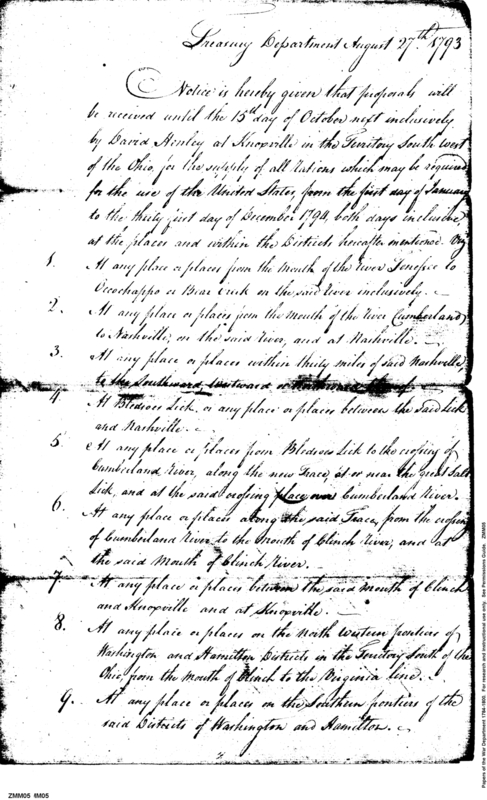 Treasury Department August 27th 1793
Notice is hereby given that proposals will
be received until the 15th day of October next inclusively
by David Henley at Knoxville in the Territory South west
of the Ohio, for the supply of all Rations which may be required
for the use of the United States, from the first day of January
to the thirty first day of December 1794, both days inclusive,
at the places and within the Districts hereafter mentioned. Viz
1. At any place or places from the Mouth of the River Tenessee to
Occochappo or Bear Creek on the said River inclusively.
2. At any place or places from the Mouth of the River Cumberland
to Nashville, on the said River, and at Nashville.
3. At any place or places within thirty miles of said Nashville
to the Southward, westward or Northward thereof
4. At Bledsoes Lick, or any place or places between the said Lick
and Nashville.
5. At any place or places from Bledsoes Lick to the crossing of
Cumberland River, along the new Trace, at or near the great Salt
Lick, and at the said crossing place over Cumberland River.
6. At any place or places along the said Trace, from the crossing
of Cumberland River to the Mouth of Clinch River, and at
the said Mouth of Clinch River.
7. At any place or places between the said Mouth of Clinch
and Knoxville and at Knoxville.
8. At any place or places on the North western frontiers of
Washington and Hamilton Districts in the Territory South of the
Ohio, from the Mouth of Clinch to the Virginia line.
9. At any place or places on the Southern frontiers of the
said Districts of Washington and Hamilton.
ZMM05 IM05
Papers of the War Department 1784-1800. For research and instructional use only. See Permissions Guide. ZMM05